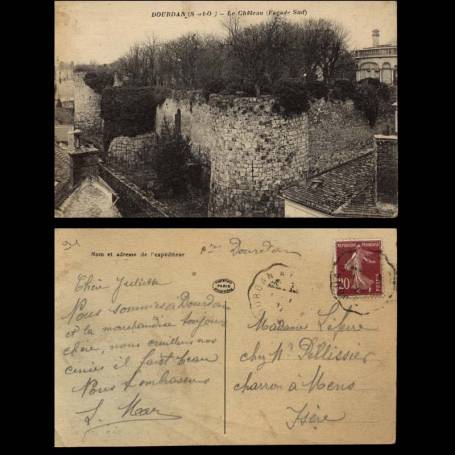 DOURDAN (S-et-O) — Le Château (Façade Sud)
Nom et adresse de l'expéditeur
Dourdan
Chère Juliette
Nous sommes à Dourdan
et la marchandise toujours
chère, nous
il fait beau
Nous t'embrassons
L.
PARIS
DOURDAN
REPUBLIQUE FRANÇAISE
20
POSTES
Madame
chez Mr Pellissier
charron à Mens
Isère